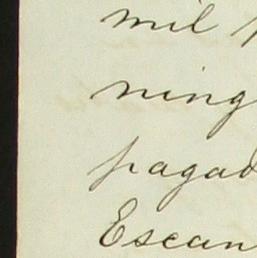 mil
ning
pagad
Escan